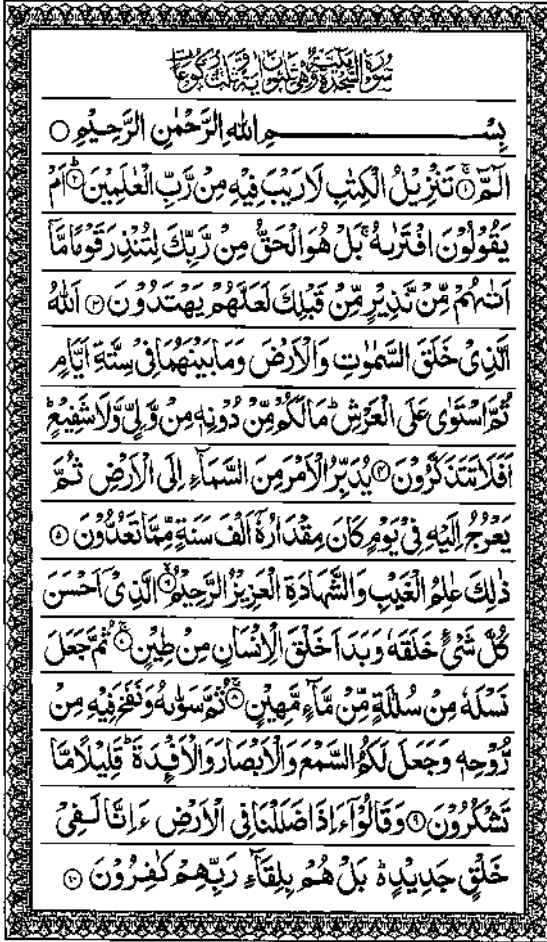 سُوْرَةُ السَّجْدَةِ مَكِّيَّةٌ وَّهِيَ ثَلٰثُوْنَ اٰيَةً وَّثَلٰثُ رُكُوْعَاتٍ
بِسْمِ اللهِ الرَّحْمٰنِ الرَّحِيْمِ ○
الٓمّٓ ۚ﴿۱﴾ تَنْزِيْلُ الْكِتٰبِ لَا رَيْبَ فِيْهِ مِنْ رَّبِّ الْعٰلَمِيْنَ ؕ﴿۲﴾ اَمْ
يَقُوْلُوْنَ افْتَرٰىهُ ۚ بَلْ هُوَ الْحَقُّ مِنْ رَّبِّكَ لِتُنْذِرَ قَوْمًا مَّاۤ
اَتٰىهُمْ مِّنْ نَّذِيْرٍ مِّنْ قَبْلِكَ لَعَلَّهُمْ يَهْتَدُوْنَ ﴿۳﴾ اَللهُ
الَّذِيْ خَلَقَ السَّمٰوٰتِ وَالْاَرْضَ وَمَا بَيْنَهُمَا فِيْ سِتَّةِ اَيَّامٍ
ثُمَّ اسْتَوٰى عَلَى الْعَرْشِ ؕ مَا لَكُمْ مِّنْ دُوْنِهٖ مِنْ وَّلِيٍّ وَّلَا شَفِيْعٍ ؕ
اَفَلَا تَتَذَكَّرُوْنَ ﴿۴﴾ يُدَبِّرُ الْاَمْرَ مِنَ السَّمَآءِ اِلَى الْاَرْضِ ثُمَّ
يَعْرُجُ اِلَيْهِ فِيْ يَوْمٍ كَانَ مِقْدَارُهٗۤ اَلْفَ سَنَةٍ مِّمَّا تَعُدُّوْنَ ﴿۵﴾
ذٰلِكَ عٰلِمُ الْغَيْبِ وَالشَّهَادَةِ الْعَزِيْزُ الرَّحِيْمُ ۙ﴿۶﴾ الَّذِيْۤ اَحْسَنَ
كُلَّ شَيْءٍ خَلَقَهٗ وَبَدَاَ خَلْقَ الْاِنْسَانِ مِنْ طِيْنٍ ۚ﴿۷﴾ ثُمَّ جَعَلَ
نَسْلَهٗ مِنْ سُلٰلَةٍ مِّنْ مَّآءٍ مَّهِيْنٍ ۚ﴿۸﴾ ثُمَّ سَوّٰىهُ وَنَفَخَ فِيْهِ مِنْ
رُّوْحِهٖ وَجَعَلَ لَكُمُ السَّمْعَ وَالْاَبْصَارَ وَالْاَفْـِٕدَةَ ؕ قَلِيْلًا مَّا
تَشْكُرُوْنَ ﴿۹﴾ وَقَالُوْۤا ءَاِذَا ضَلَلْنَا فِي الْاَرْضِ ءَاِنَّا لَفِيْ
خَلْقٍ جَدِيْدٍ ؕ۬ بَلْ هُمْ بِلِقَآءِ رَبِّهِمْ كٰفِرُوْنَ ﴿۱۰﴾